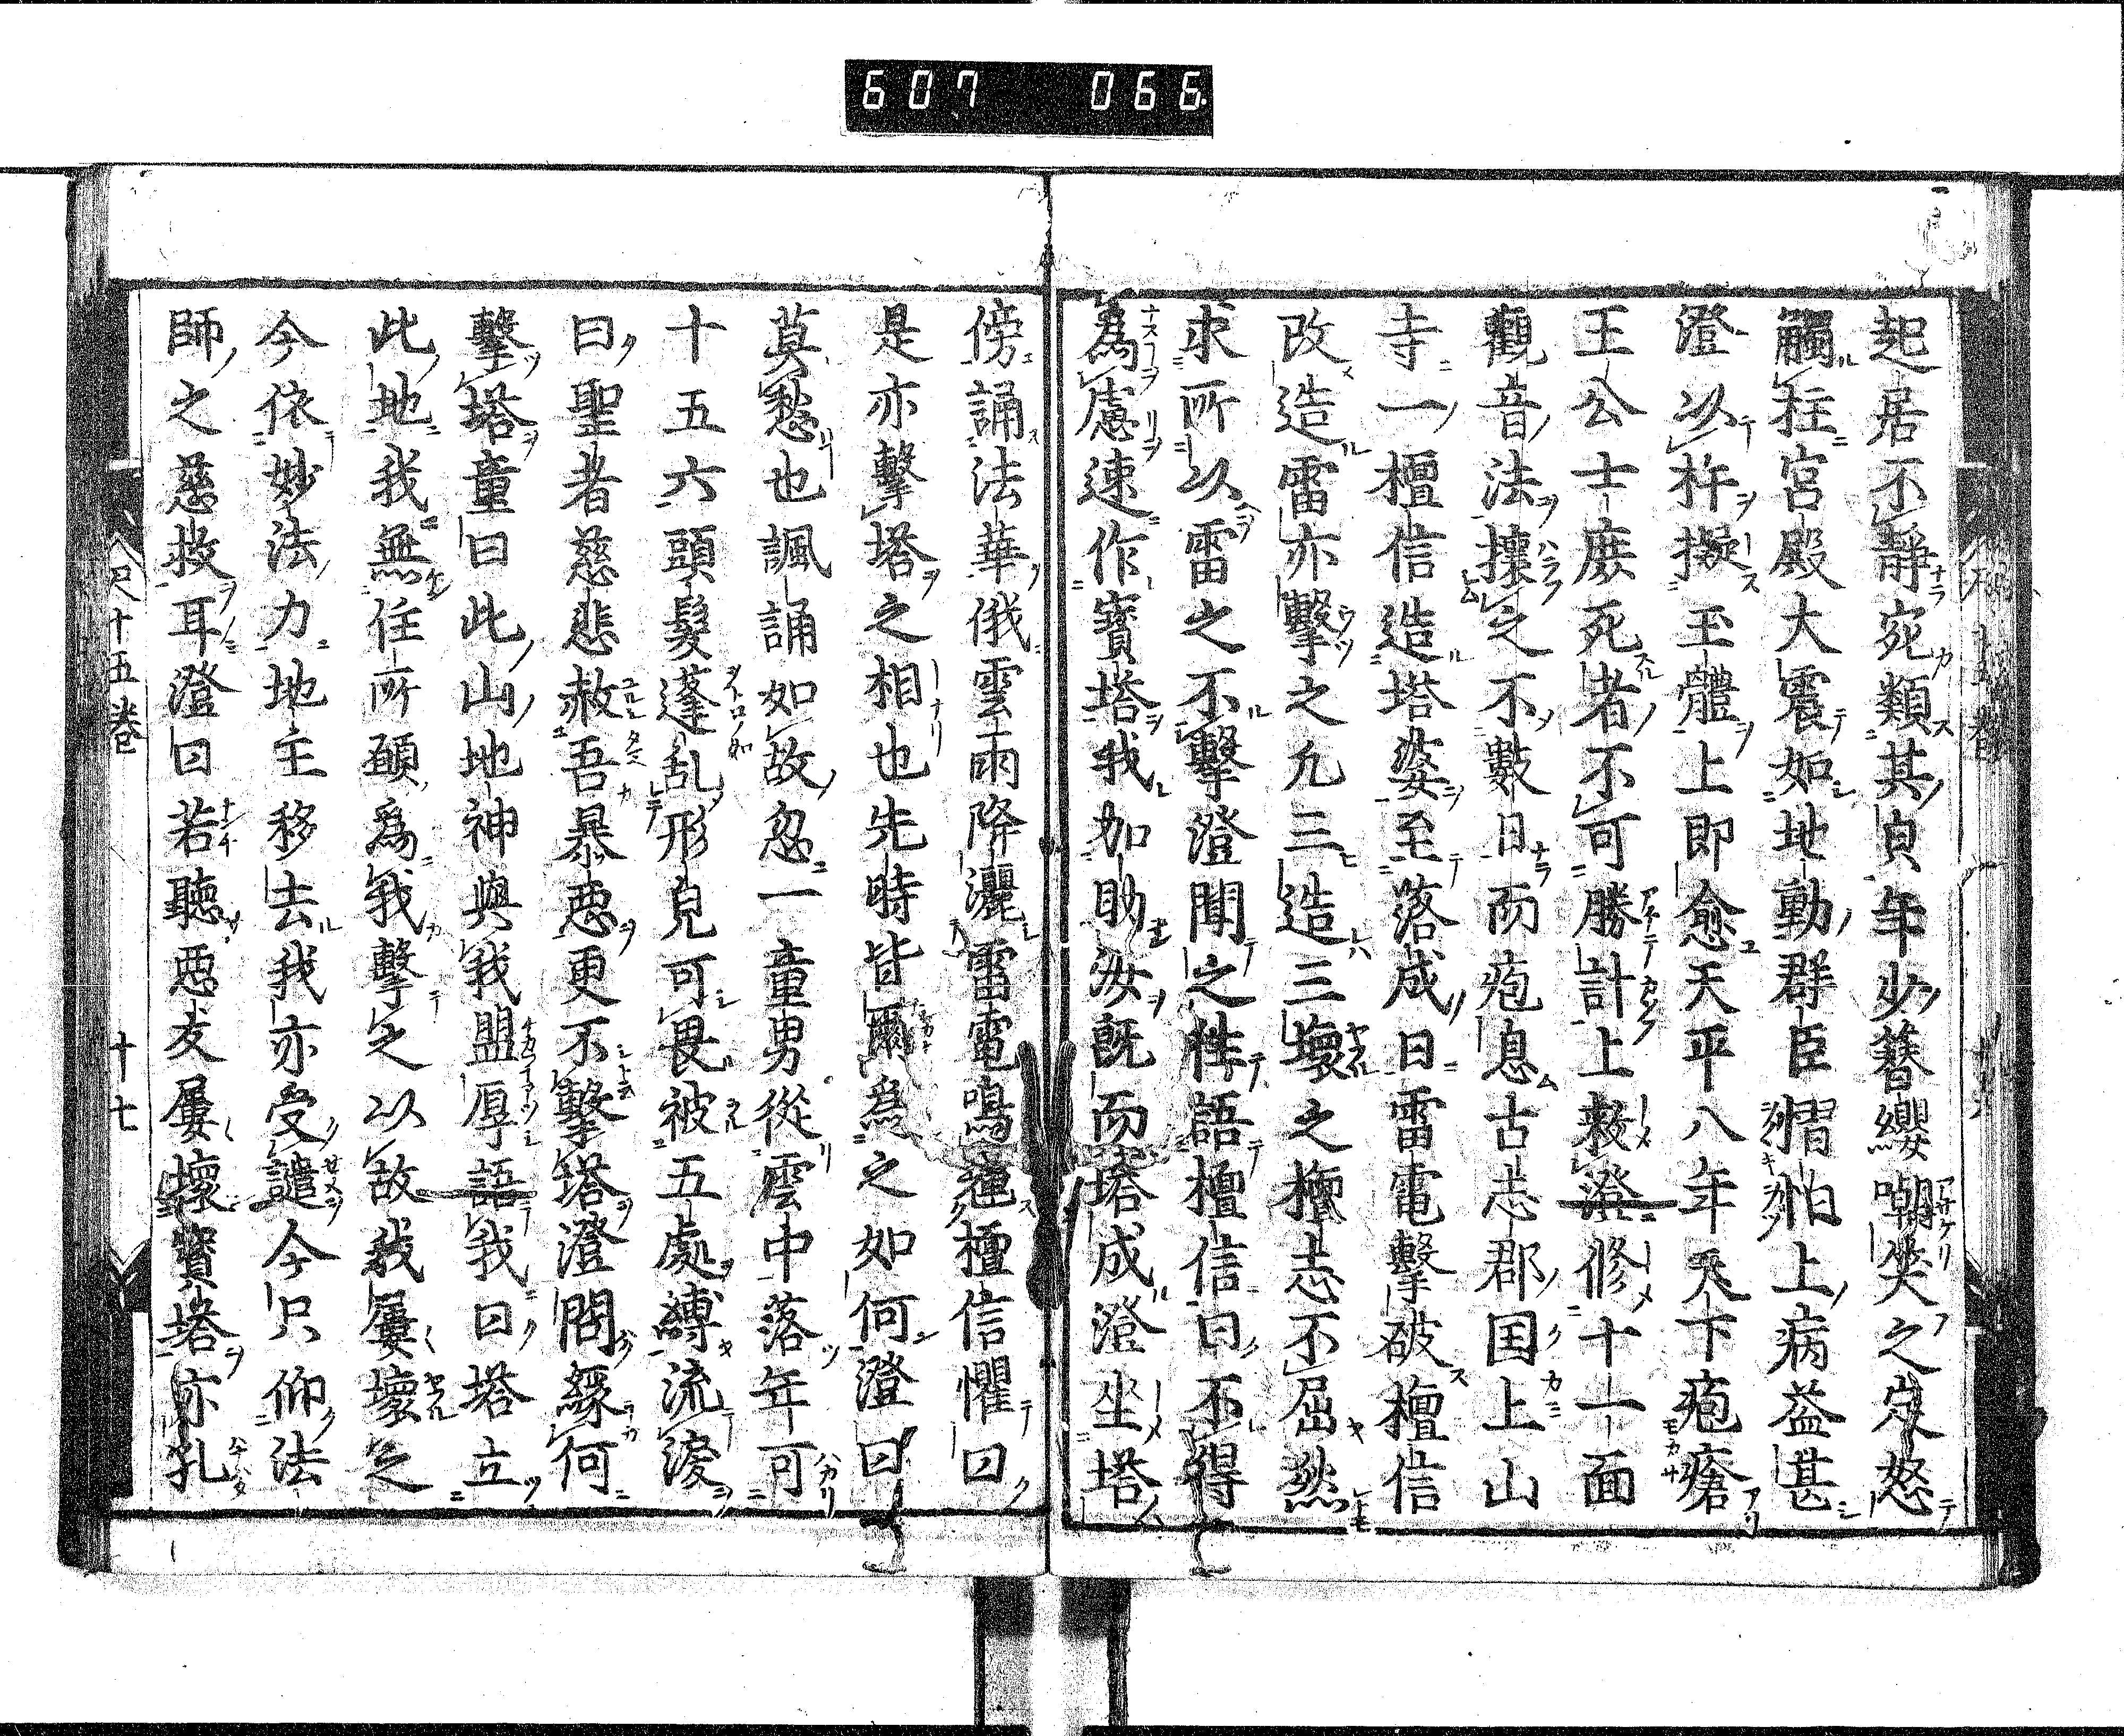 607 066
起居不靜宛類其皃年少簪纓嘲笑之㝎怒
觸柱宮殿大震如地動群臣慴怕上病益甚
澄以杵擬玉體上即愈天平八年天下疱瘡
王公士庶死者不可勝計上敕澄修十一面
觀音法攘之不數日而疱息古志郡国上山
寺一檀信造塔婆至落成日雷電擊破檀信
改造雷亦擊之九三造三壞之檀志不屈然
求所以雷之不擊澄聞之徃語檀信曰不得
為慮速作寳塔我加助汝既而塔成澄坐塔
傍誦法華俄雲雨降灑雷電鳴運檀信懼曰
是亦擊塔之相也先時皆爾為之如何澄曰
莫愁也諷誦如故忽一童男從雲中落年可
十五六頭髮蓬乱形皃可畏被五處縛流淚
曰聖者慈悲赦吾暴惡更不擊塔澄問緣何
擊塔童曰此山地神與我盟厚語我曰塔立
此地我無住所願為我擊之以故我屢壞之
今依妙法力地主移去我亦受譴今只仰法
師之慈救耳澄曰若聽惡友屢壞寳塔亦孔
尺十五巻
十七